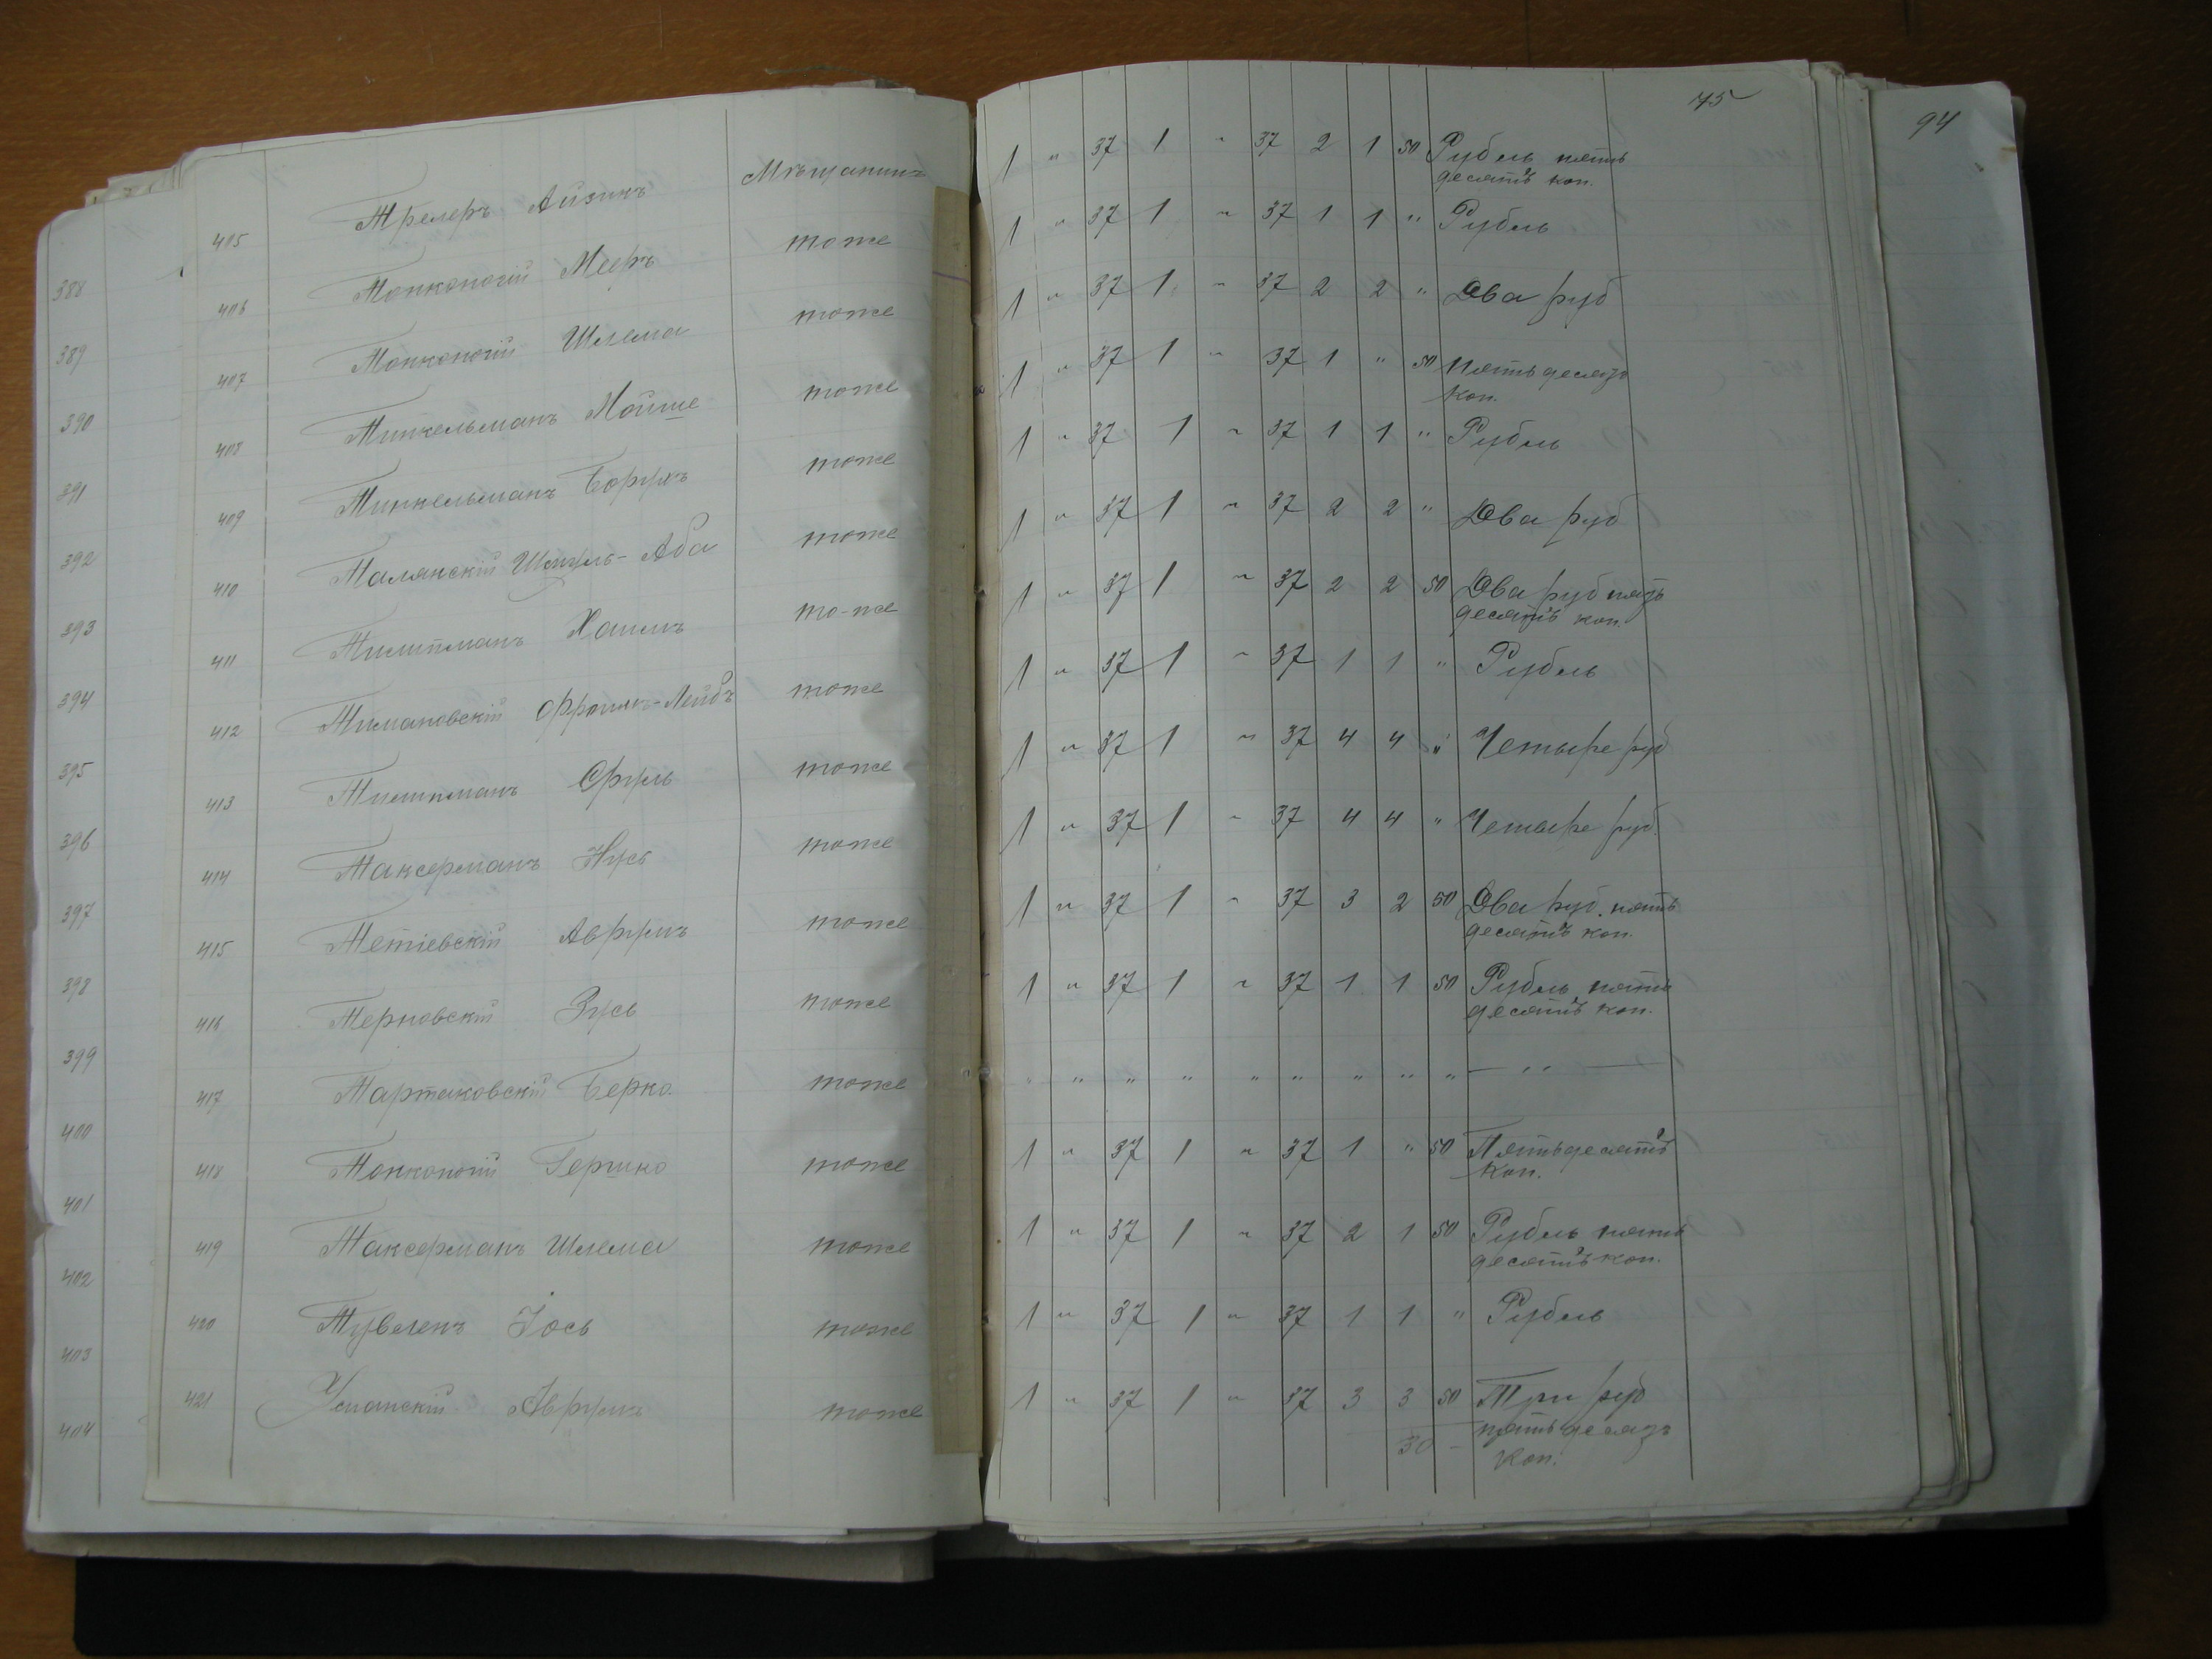 75
94
405 Трелеръ Айзикъ Мѣщанинъ 1 " 37 1 " 37 2 1 50 Рубль пять
десятъ коп.
406 Тонконогій Мееръ тоже 1 " 37 1 " 37 1 1 " Рубль
407 Тонконогій Шлема тоже 1 " 37 1 " 37 2 2 " Два руб
408 Тинкельманъ Мойше тоже 1 " 37 1 " 37 1 " 50 Пятьдесятъ
коп.
409 Тинкельманъ Борухъ тоже 1 " 37 1 " 37 1 1 " Рубль
410 Талянскій Шмуль-Аба тоже 1 " 37 1 " 37 2 2 " Два руб
411 Хаимъ то-же 1 " 37 1 " 37 2 2 50 Два руб пять
десятъ коп.
412 Тимановскій Фроимъ-Лейбъ тоже 1 " 37 1 " 37 1 1 " Рубль
413 Сруль тоже 1 " 37 1 " 37 4 4 " Четыре руб
414 Таксерманъ Нусъ тоже 1 " 37 1 " 37 4 4 " Четыре руб.
415 Тетіевскій Аврумъ тоже 1 " 37 1 " 37 3 2 50 Два руб. пять
десятъ коп.
416 Терновскій Зусь тоже 1 " 37 1 " 37 1 1 50 Рубль пять
десятъ коп.
417 Тартаковскій Берко. тоже " " " " " " " " " — " —
418 Тонконогій Гершко тоже 1 " 37 1 " 37 1 " 50 Пятьдесятъ
коп.
419 Таксерманъ Шлема тоже 1 " 37 1 " 37 2 1 50 Рубль пять
десятъ коп.
420 Тувеленъ Іось тоже 1 " 37 1 " 37 1 1 " Рубль
421 Уманскій Аврумъ тоже 1 " 37 1 " 37 3 3 50 Три руб
30 – пятьдесятъ
коп.
388
389
390
391
392
393
394
395
396
397
398
399
400
401
402
403
404